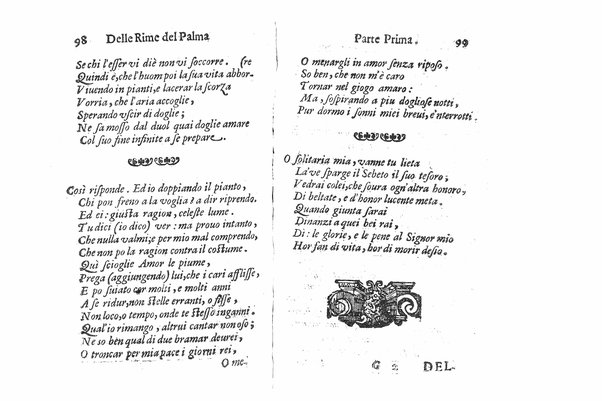 98 Delle Rime del Palma
Se chi l'esser vi diè non vi soccorre. (re
Quindi è, che l'huom poi la sua vita abbor-
Viuendo in pianti, e lacerar la scorza
Vorria, che l'aria accoglie,
Sperando vscir di doglie;
Ne sa mosso dal duol quai doglie amare
Col suo fine infinite a se prepare.
Così risponde. Ed io doppiando il pianto,
Chi pon freno a la voglia? a dir riprendo.
Ed ei: giusta ragion, celeste lume.
Tu dici (io dico) ver: ma prouo intanto,
Che nulla valmi; e per mio mal comprendo,
Che non po la ragion contra il costume.
Qui scioglie Amor le piume,
Prega (aggiungendo) lui, che i cari afflisse,
E po suiato cor molti, e molti anni
A se ridur, non stelle erranti, o fisse,
Non loco, o tempo, onde te stesso inganni.
Qual io rimango, altrui cantar non oso;
Ne so ben qual di due bramar deurei,
O troncar per mia pace i giorni rei,
O me-
Parte Prima. 99
O menargli in amor senza riposo.
So ben, che non m'è caro
Tornar nel giogo amaro:
Ma, sospirando a piu dogliose notti,
Pur dormo i sonni miei breui, e'nterrotti.
O solitaria mia, vanne tu lieta
La've sparge il Sebeto il suo tesoro;
Vedrai colei, che soura ogn'altra honoro,
Di beltate, e d'honor lucente meta.
Quando giunta sarai
Dinanzi a quei bei rai,
Di: le glorie, e le pene al Signor mio
Hor san di vita, hor di morir desio.
G 2 DEL-